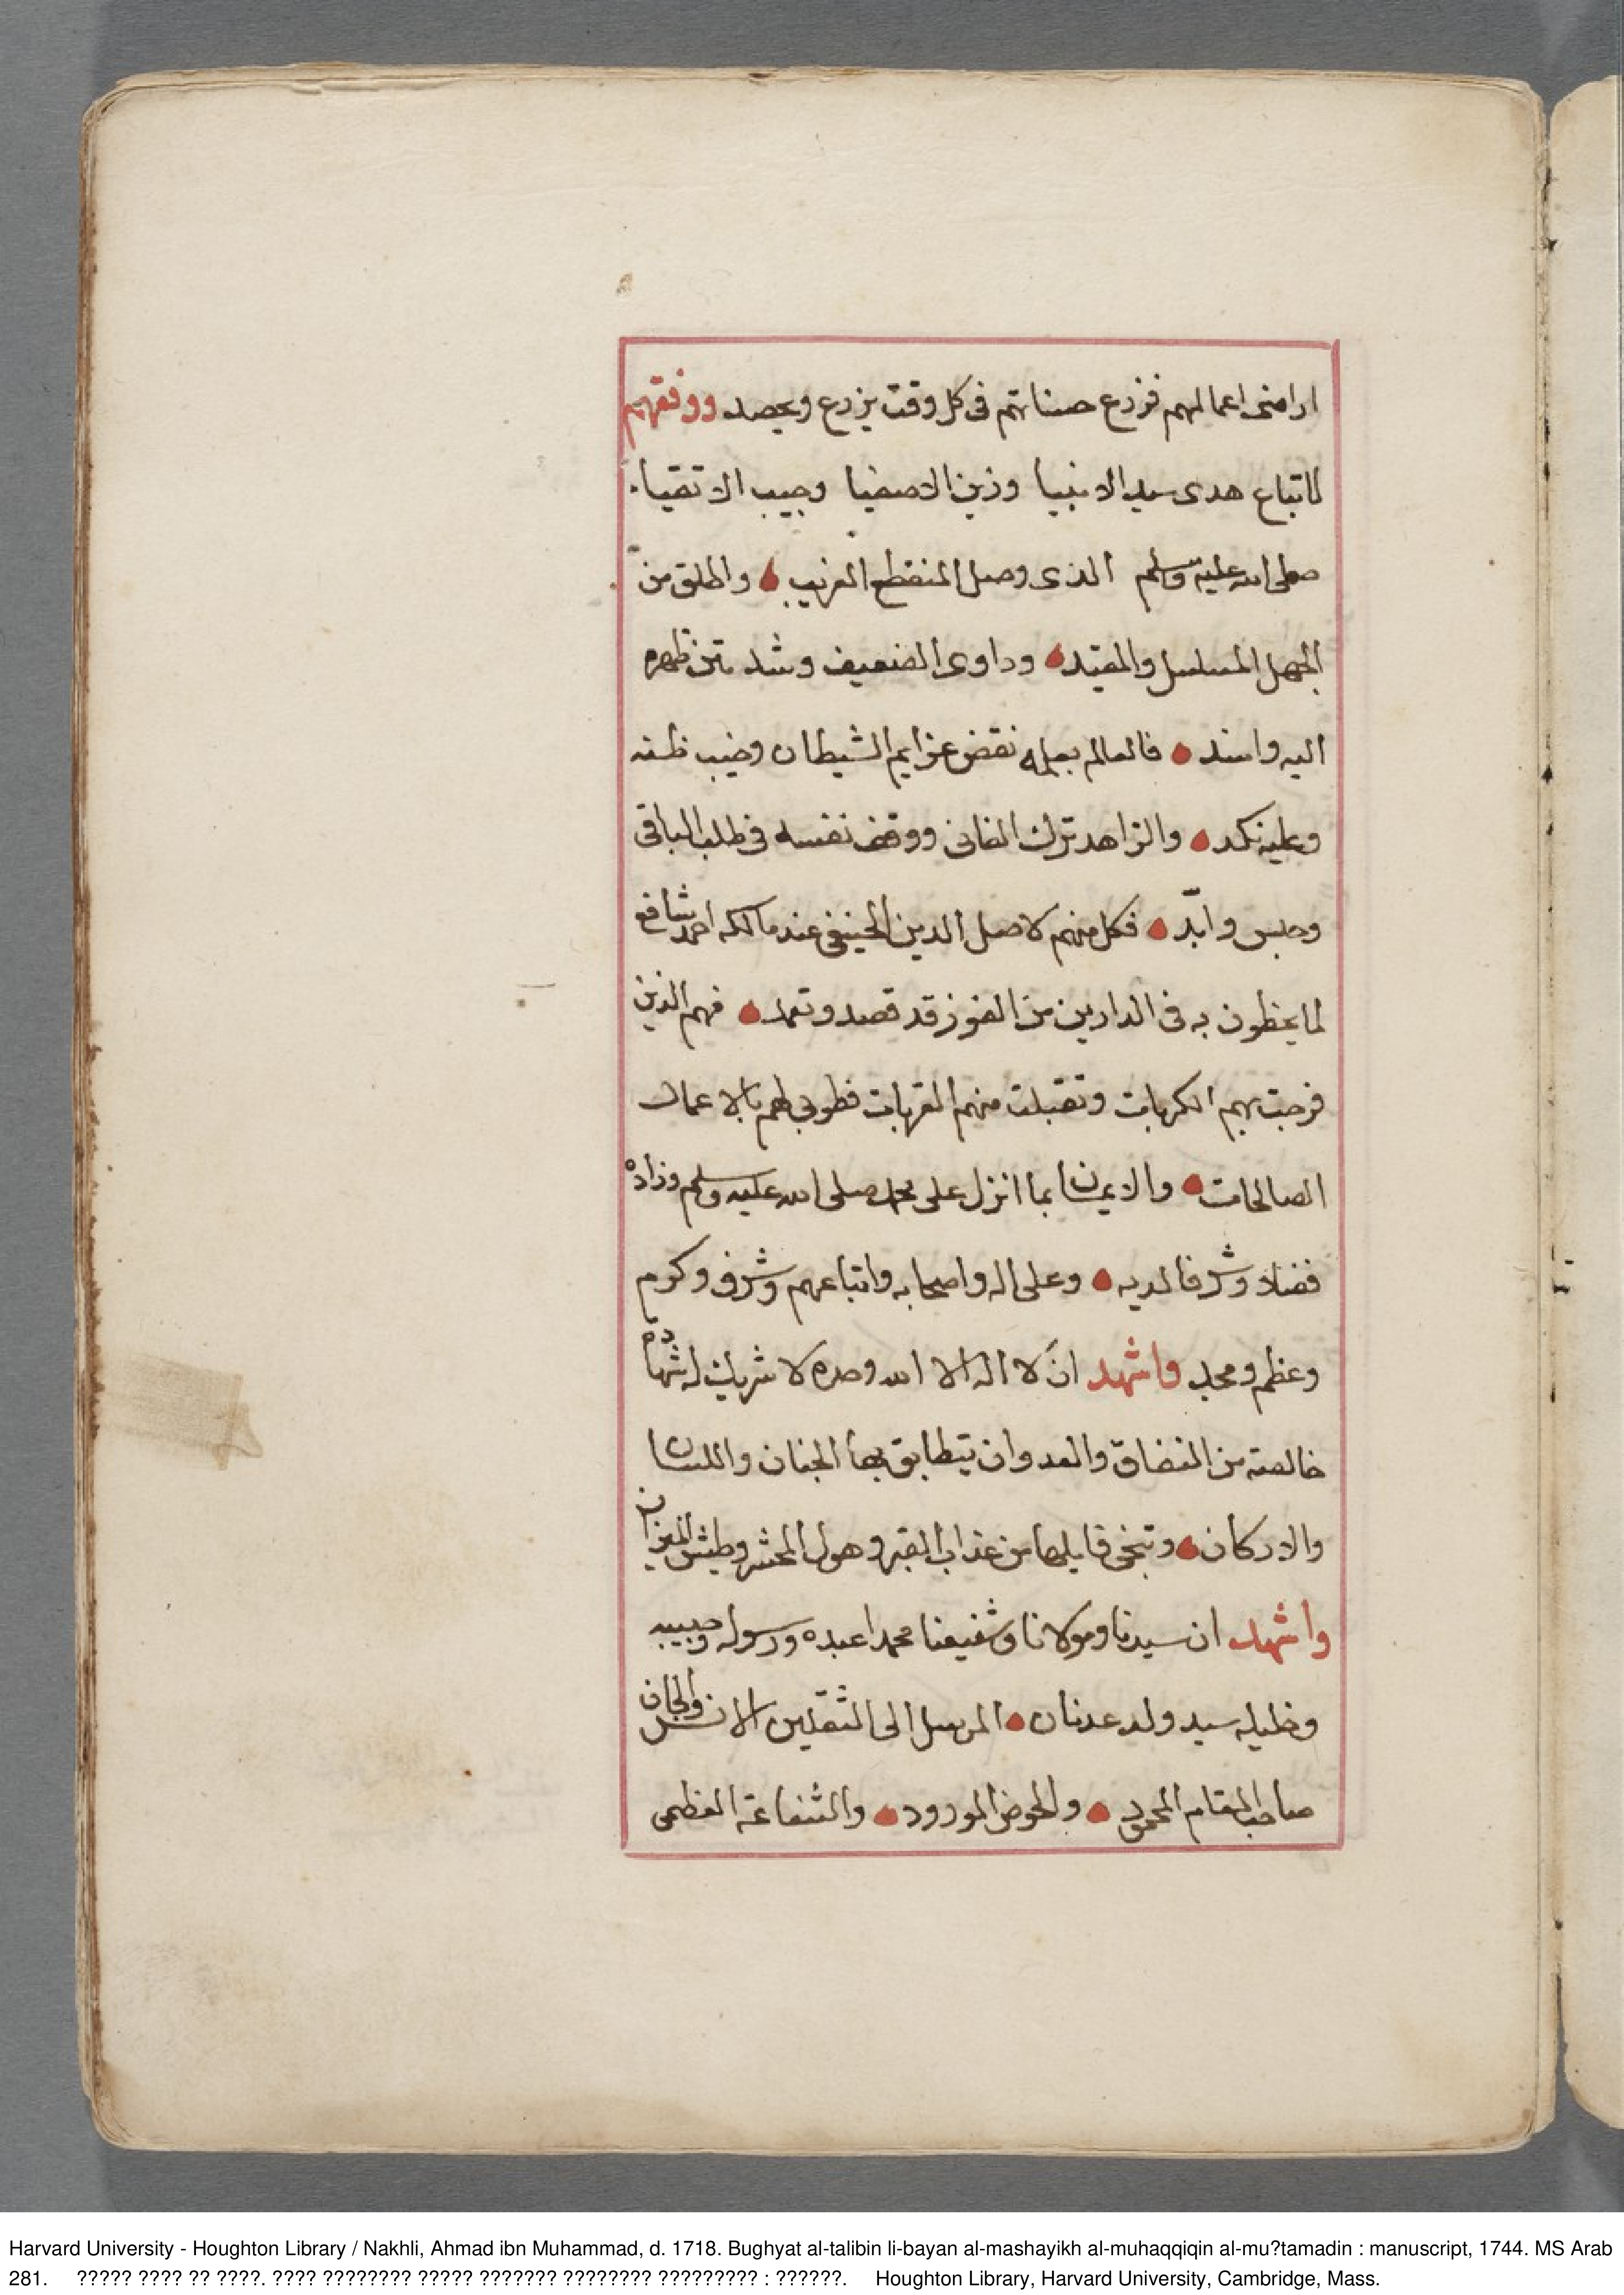 اراضى اعمالهم فزرع حسناتهم فى كل وقت يزرع ويحصد ووفقهم
لاتباع هدى سيد الانبيا وزين الاصفيا وحبيب الاتقياء
صلى الله عليه وسلم الذى وصل المنقطع الغريب واطلق من
الجهل المسلسل والمقيد وداوى الضعيف وشد متن ظهره
اليه واسند فالعالم بعلمه نقض عزايم الشيطان وخيب ظنه
وعليه نكد والزاهد ترك الفانى ووقف نفسه فى طلب الباقى
وحبس وابّد فكل منهم لاصل الدين الحنيفى عند مالكه احمد شافع
لما يحظون به فى الدارين من الفوز قد قصد وتعمد فهم الذين
فرجت بهم الكربات وتقبلت منهم القربات فطوبى لهم بالاعمال
الصالحات والايمان بما انزل على محمد صلى الله عليه وسلم وزاده
فضلا وشرفا لديه وعلى اله واصحابه واتباعهم وشرف وكرم
وعظم ومجد واشهد ان لا اله الا الله وحده لا شريك له شهادة
خالصة من النفاق والعدوان يتطابق بها الجنان واللسان
والاركان وتنجى قايلها من عذاب القبر وهول المحشر وطيش الميزان
واشهد ان سيدنا ومولانا وشفيعنا محمدا عبده ورسوله وحبيبه
وخليله سيد ولد عدنان المرسل الى الثقلين الانس والجان
صاحب المقام المحمود والحوض المورود والشفاعة العظمى
Harvard University - Houghton Library / Nakhli, Ahmad ibn Muhammad, d. 1718. Bughyat al-talibin li-bayan al-mashayikh al-muhaqqiqin al-mu?tamadin : manuscript, 1744. MS Arab
281. ????? ???? ?? ????. ???? ???????? ????? ??????? ???????? ????????? : ??????. Houghton Library, Harvard University, Cambridge, Mass.